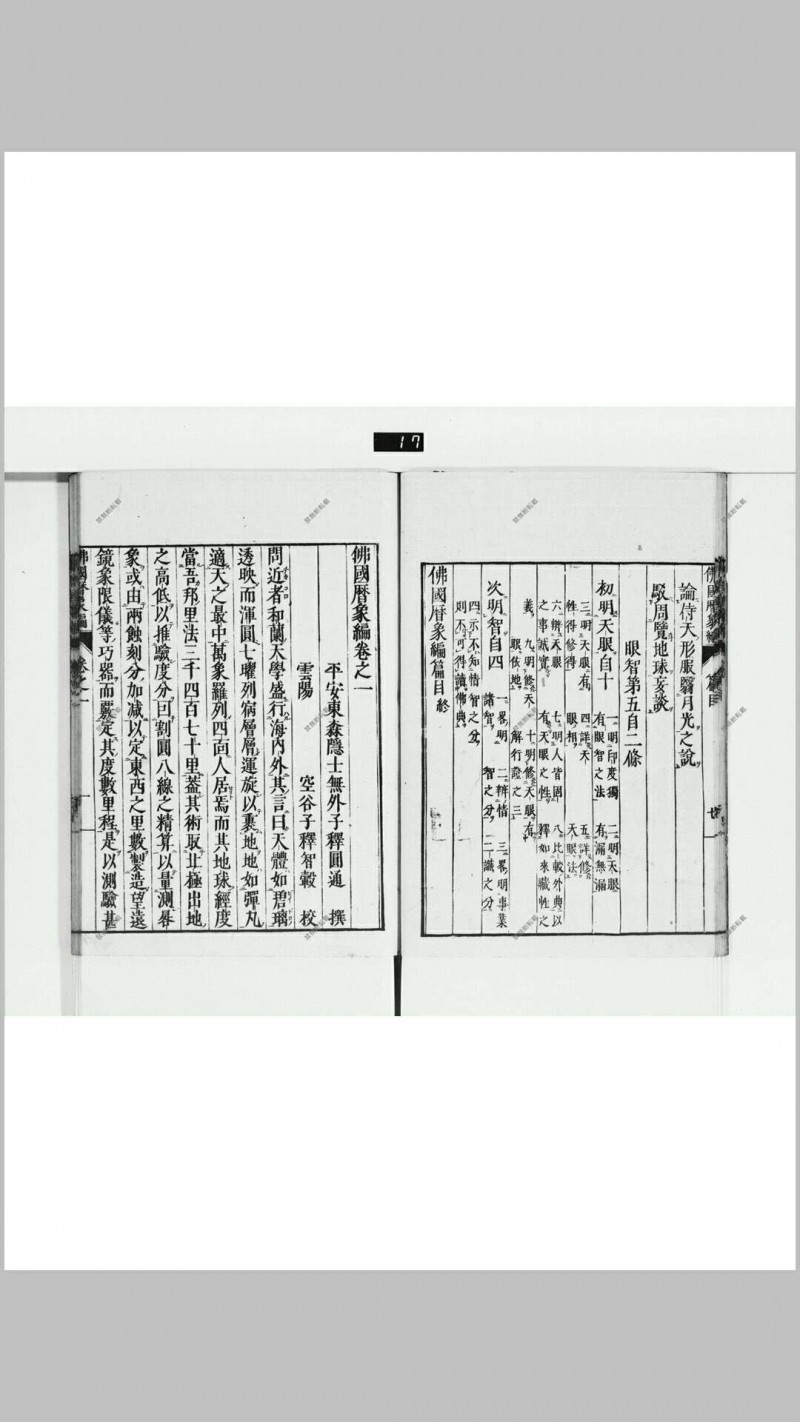 17
論侍天形服翳月光之說
駁周覽地球妄談
眼智第五自二條
初明天眼自十
一明印度獨有眼智之法
二明天眼有漏無漏
三明天眼有性得修得
四詳天眼相
五詳修天眼法
六辨天眼之事誠實
七明人皆固有天眼之性
八比較外典以釋如來藏性之義
九明修天眼依地
十明修天眼有解行證之三
次明智自四
一畧明諸智
二辨情智之分
三畧明事業二識之分
四示不知情智之分則不可得讀佛典
佛國曆象編篇目終
佛國曆象編卷之一
平安東森隱士無外子釋圓通 撰
雲陽 空谷子釋智轂 校
問近者和蘭天學盛行海內外其言曰天體如碧璃
透映而渾圓七曜列宿層層運旋以裹地地如彈丸
適天之最中萬象羅列四面人居焉而其地球經度
當吾邦里法三千四百七十里蓋其術取北極出地
之高低以推驗度分回割圓八線之精算以量測晷
象或由兩蝕刻分加減以定東西之里數製造望遠
鏡象限儀等巧器而嚴定其度數里程是以測驗甚
卷之一